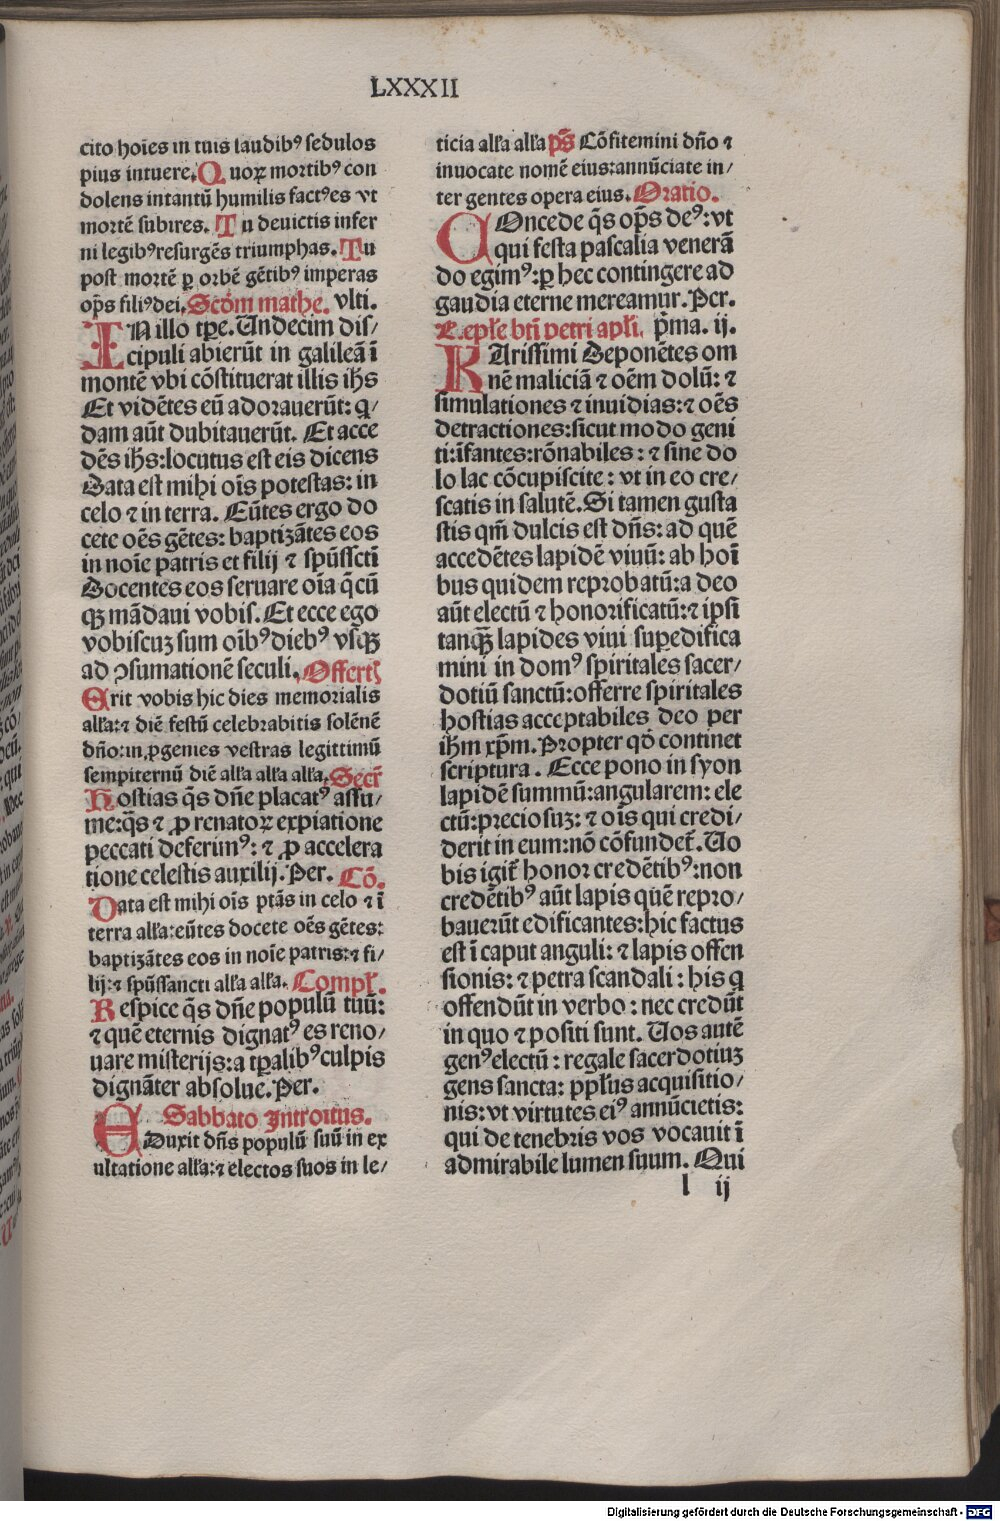 LXXXII
cito hoīes in tuis laudibꝰ sedulos
pius intuere. Quoꝝ mortibꝰ con
dolens intantū humilis factꝰes vt
mortē subires. Tu deuictis infer
ni legibꝰresurgēs triumphas. Tu
post mortē ꝑ orbē gētibꝰ imperas
op̄s filiꝰdei. Scd̄m mathe. vlti.
IN illo tp̄e. Undecim dis/
cipuli abierūt in galileā ī
montē vbi cōstituerat illis ih̄s
Et vidētes eū adorauerūt: q/
dam aūt dubitauerūt. Et acce
dēs ih̄s: locutus est eis dicens
Data est mihi oīs potestas: in
celo ⁊ in terra. Eūtes ergo do
cete oēs gētes: baptizātes eos
in noīe patris et filij ⁊ sp̄ūssctī
Docentes eos seruare oīa q̄cū
qꝫ mādaui vobis. Et ecce ego
vobiscuꝫ sum oībꝰ diebꝰ vsqꝫ
ad ꝯsumationē seculi. Offertꝭ
Erit vobis hic dies memorialis
alľa: ⁊ diē festū celebrabitis solēnē
dn̄o: in ꝓgenies vestras legittimū
sempiternū diē alľa alľa alľa. Secr̄
Hostias q̄s dn̄e placatꝰ assu/
me: q̄s ⁊ ꝓ renatoꝝ expiatione
peccati deferimꝰ: ⁊ ꝓ accelera
tione celestis auxilij. Per. Cō.
Data est mihi oīs ptās in celo ⁊ ī
terra alľa: eūtes docete oēs gētes:
baptizātes eos in noīe patris: ⁊ fi/
lij: ⁊ sp̄ūssancti alľa alľa. Compľ.
Respice q̄s dn̄e populū tuū:
⁊ quē eternis dignatꝰ es reno/
uare misterijs: a tp̄alibꝰ culpis
dignāter absolue. Per.
Sabbato Introitus.
EDuxit dn̄s populū suū in ex
ultatione alľa: ⁊ electos suos in le/
ticia alľa alľa p̄s Cōfitemini dn̄o ⁊
inuocate nomē eius: annūciate in/
ter gentes opera eius. Oratio.
COncede q̄s op̄s deꝰ: vt
qui festa paschalia venerā
do egimꝰ: ꝑ hec contingere ad
gaudia eterne mereamur. Per.
L. epľe bt̄i petri apľi. p̄ma. ij.
KArissimi Deponētes om
nē maliciā ⁊ oēm dolū: ⁊
simulationes ⁊ inuidias: ⁊ oēs
detractiones: sicut modo geni
ti: īfantes: rōnabiles: ⁊ sine do
lo lac cōcupiscite: vt in eo cre/
scatis in salutē. Si tamen gusta
stis qm̄ dulcis est dn̄s: ad quē
accedētes lapidē viuū: ab hoī
bus quidem reprobatū: a deo
aūt electū ⁊ honorificatū: ⁊ ipsi
tanqꝫ lapides viui suꝑedifica
mini in domꝰ spiritales sacer/
dotiū sanctū: offerre spiritales
hostias acceptabiles deo per
ih̄m xp̄m. Propter qd̄ continet
scriptura. Ecce pono in syon
lapidē summū: angularem: ele
ctū: preciosuꝫ: ⁊ oīs qui credi/
derit in eum: nō cōfundet̄. Uo
bis igit̄ honor credētibꝰ: non
credētibꝰ aūt lapis quē repro/
bauerūt edificantes: hic factus
est ī caput anguli: ⁊ lapis offen
sionis: ⁊ petra scandali: his q
offendūt in verbo: nec credūt
in quo ⁊ positi sunt. Uos autē
genꝰ electū: regale sacerdotiuꝫ
gens sancta: ppľus acquisitio/
nis: vt virtutes eiꝰ annūcietis:
qui de tenebris vos vocauit ī
admirabile lumen suum. Qui
l ij
Digitalisierung gefördert durch die Deutsche Forschungsgemeinschaft - DFG